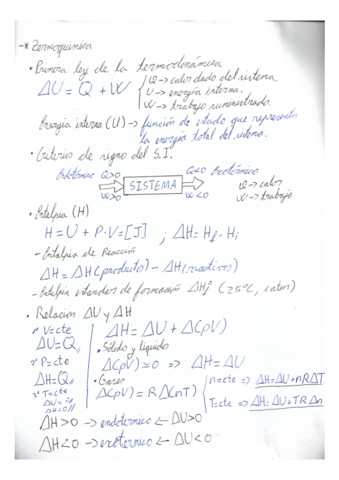 -* Termoquímica
• Primera ley de la termodinámica
ΔU = Q + W { Q -> calor dado del sistema.
U -> energía interna.
W -> trabajo suministrado.
Energía interna (U) -> función de estado que representa
la energía total del sistema.
• Criterios de signo del S.I.
Endotérmico Q>0 Q<0 Exotérmico
SISTEMA
W>0 W<0
Q -> calor
W -> trabajo
• Entalpia (H)
H = U + P·V = [J] ; ΔH = Hf - Hi
- Entalpia de Reacción
ΔH = ΔH(productos) - ΔH(reactivos)
- Entalpia estandar de formación ΔHf° (25°C, 1 atm)
• Relacion ΔU y ΔH
V=cte
ΔU = Qv
P=cte
ΔH = Qp
T=cte
ΔH = ΔU + Δ(pV)
• Sólido y líquido
Δ(pV) ≈ 0 => ΔH = ΔU
• Gases
Δ(pV) = R Δ(nT) { n=cte => ΔH = ΔU + nRΔT
T=cte => ΔH = ΔU + TRΔn
ΔH > 0 -> endotérmico <- ΔU > 0
ΔH < 0 -> exotérmico <- ΔU < 0